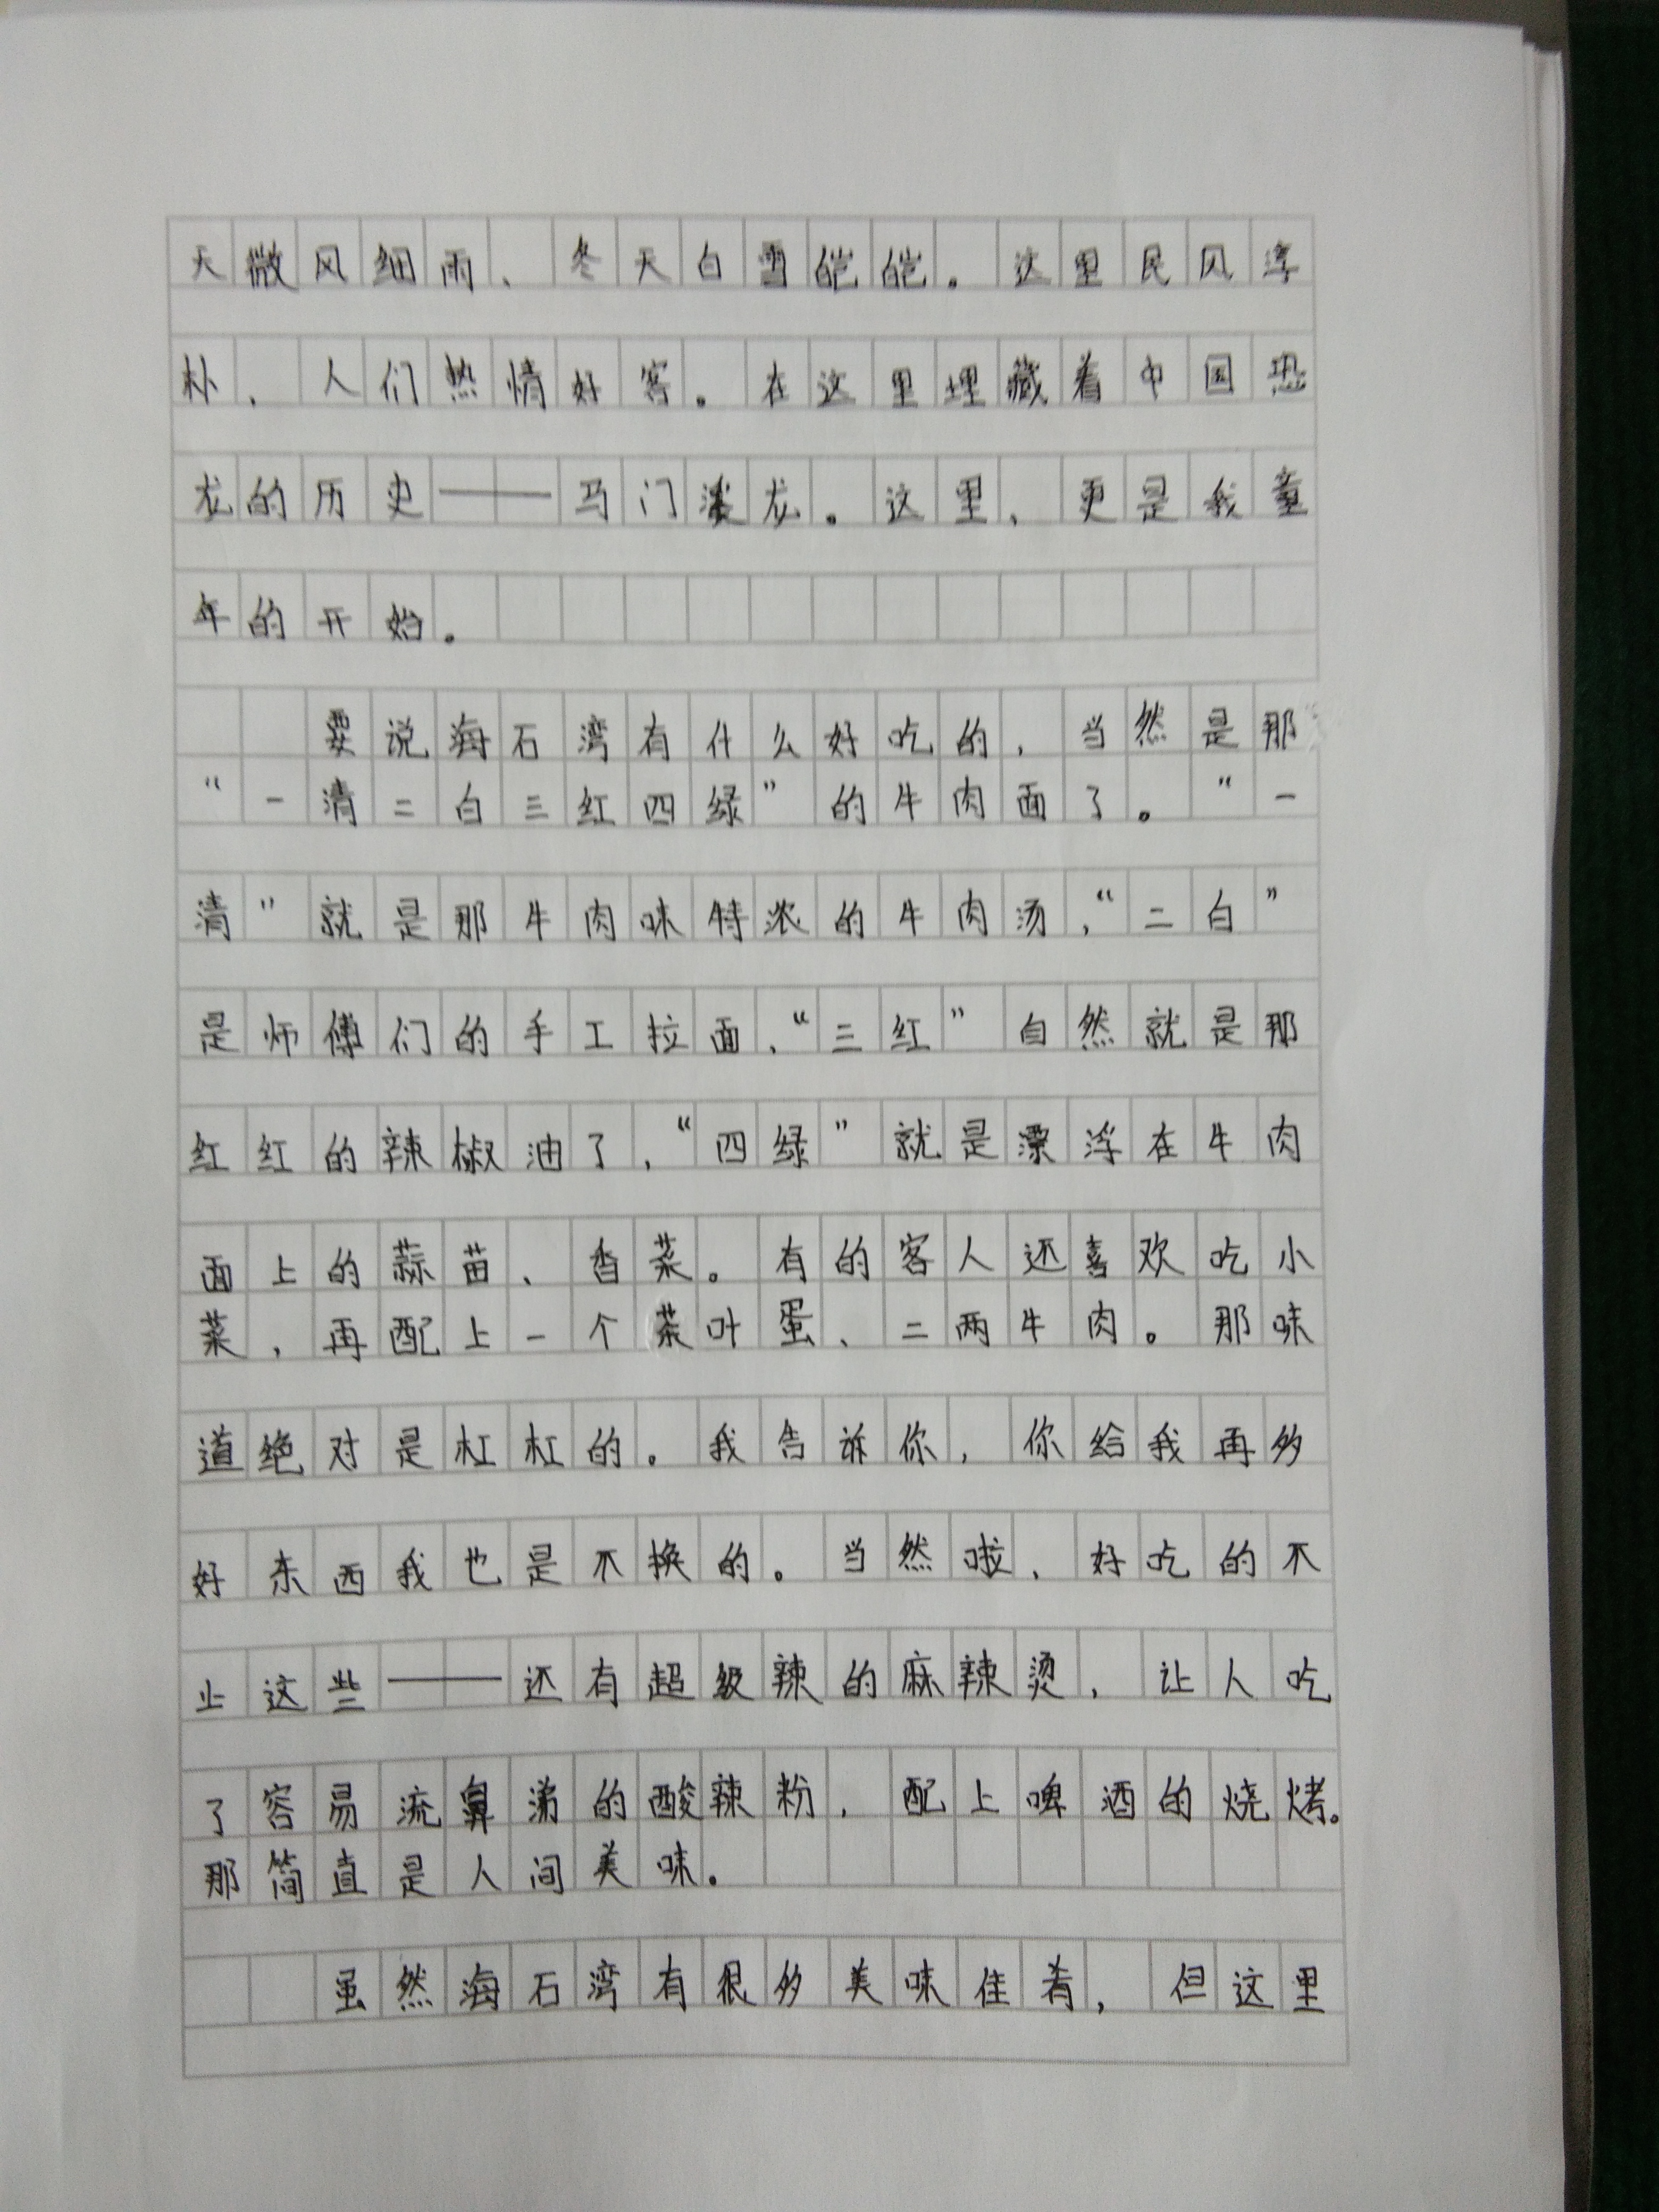 天微风细雨、冬天白雪皑皑。这里民风淳
朴，人们热情好客。在这里埋藏着中国恐
龙的历史——马门溪龙。这里，更是我童
年的开始。
要说海石湾有什么好吃的，当然是那
“一清二白三红四绿”的牛肉面了。“一
清”就是那牛肉味特浓的牛肉汤，“二白”
是师傅们的手工拉面，“三红”自然就是那
红红的辣椒油了，“四绿”就是漂浮在牛肉
面上的蒜苗、香菜。有的客人还喜欢吃小
菜，再配上一个茶叶蛋、二两牛肉。那味
道绝对是杠杠的。我告诉你，你给我再多
好东西我也是不换的。当然啦，好吃的不
止这些——还有超级辣的麻辣烫，让人吃
了容易流鼻涕的酸辣粉，配上啤酒的烧烤。
那简直是人间美味。
虽然海石湾有很多美味佳肴，但这里